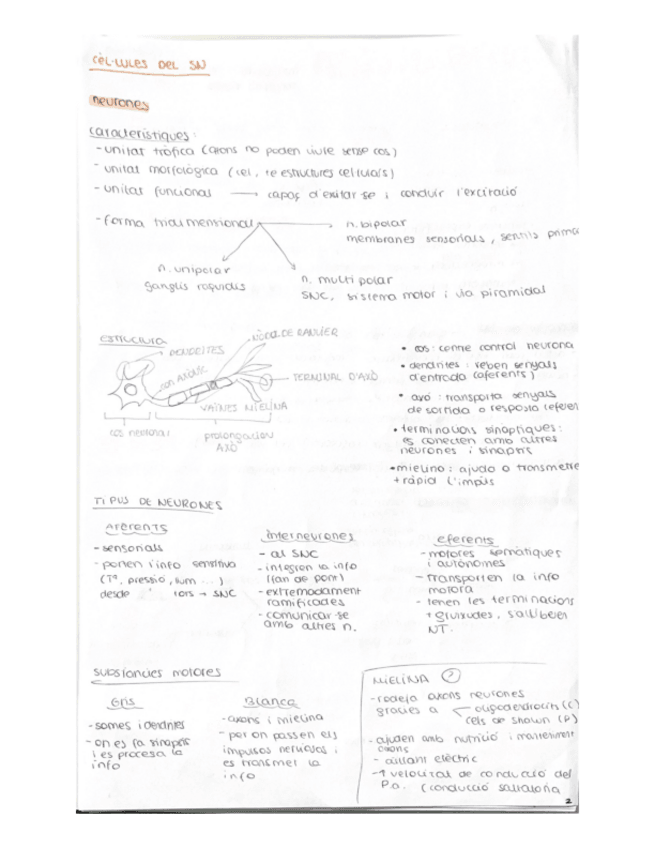 CÈL·LULES DEL SN
neurones
característiques:
- unitat tròfica (axons no poden viure sense cos)
- unitat morfològica (cel, te estructures cel·lulars)
- unitat funcional → capaç d'exitar-se i conduir l'excitació
- forma tridimentional →
n. bipolar
membranes sensorials, sentits prima
n. unipolar
ganglis raquidis
n. multipolar
SNC, sistema motor i via piramidal
ESTRUCTURA
DENDRITES
NÒDUL DE RANVIER
con AXÒNIC
TERMINAL D'AXÓ
VAINES MIELINA
cos neuronal
prolongacion
AXÓ
• cos: conte control neurona
• dendrites: reben senyals
d'entrada (aferents)
• axó: transporta senyals
de sortida o resposta (eferen
• terminacions sinaptiques:
es conecten amb altres
neurones i sinapsis
• mielina: ajuda a transmetre
+ ràpid l'impuls
TIPUS DE NEURONES
AFERENTS
- sensorials
- porten l'info sensitiva
(Tª, pressió, llum ...)
desde tors → SNC
interneurones
- al SNC
- integren la info
(fan de pont)
- extremodament
ramificades
- comunicar-se
amb altres n.
eferents
- motores somatiques
i autònomes
- transporten la info
motora
- tenen les terminacions
+ gruixudes, s'alliberen
NT.
Substàncies motores
Gris
- somes i dendrites
- on es fa sinapsis
i es procesa la
info
Blanca
- axons i mielina
- per on passen els
impulsos nerviosos i
es transmet la
info
MIELINA ②
- rodeja axons neurones
gràcies a
oligodendròcits (C)
cels de shown (P)
- ajuden amb nutrició i manteniment
axons
- aïllant elèctric
- ↑ velocitat de conducció del
P.a. (conducció saltatoria
2